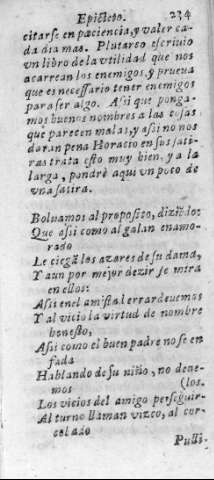 Epicteto. 234
citarse en paciencia, y valer ca-
da dia mas. Plutarco escriuio
vn libro de la vtilidad que nos
acarrean los enemigos, y prueua
que es necessario tener enemigos
para ser algo. Assi que ponga-
mos buenos nombres a las cosas,
que parecen malas, y assi no nos
daran pena Horacio en sus sati-
ras trata esto muy bien, y a la
larga, pondrè aqui vn poco de
vna satira.
Boluamos al proposito, diziẽdo:
Que assi como al galan enamo-
rado
Le ciegã los azares de su dama,
Y aun por mejor dezir se mira
en ellos:
Assi en el amistad errar deuemos
Y al vicio la virtud de nombre
honesto,
Assi como el buen padre no se en
fada
Hablando de su niño, no deue-
mos (los.
Los vicios del amigo perseguir-
Al turno llaman vizco, al cor-
celado
Pulli-